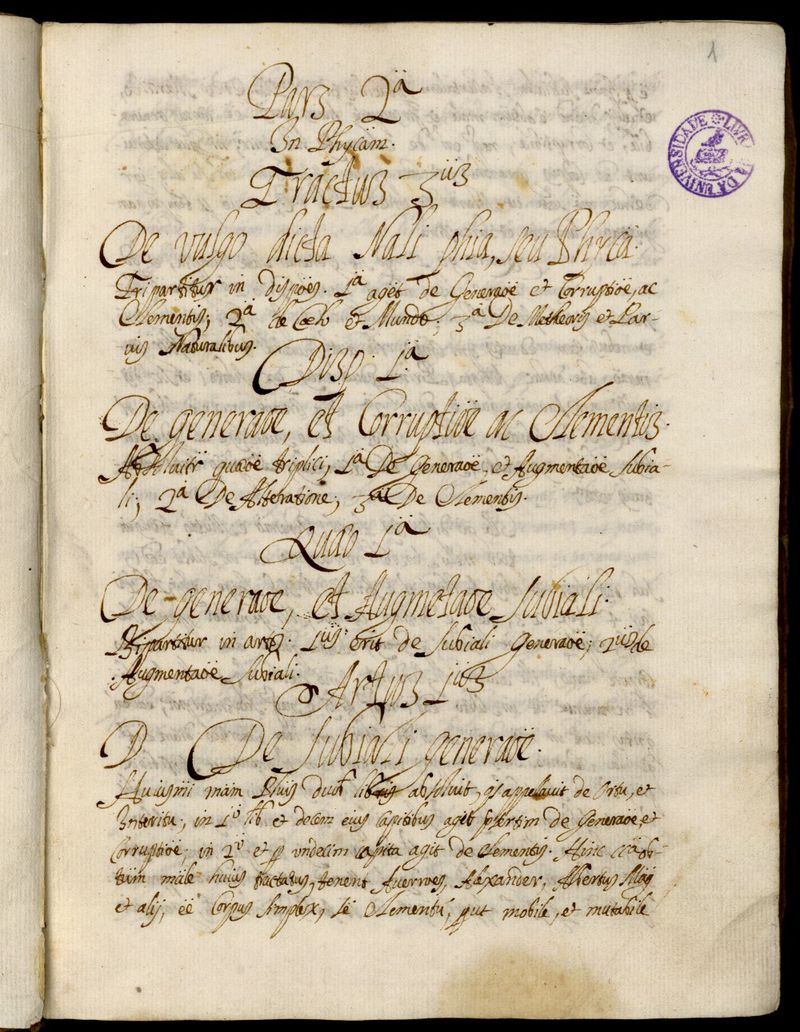 1
LIVR DA UNIVERSIDADE
Pars 2ª
In Phycam.
Tractus 3us
De vulgo dicta Nali phia, seu Phyca.
Tripartitur in dispões. 1ª aget de Generaõe et Corruptiõe, ac
Elementis; 2ª de Coelo et Mundo; 3ª De Metheoris et Par-
vis Naturalibus.
Disp. 1ª
De generaõe, et Corruptiõe ac Elementis.
Absolvitr quaõe triplici, 1ª De Generaõe, et Augmentaõe subia-
li; 2ª De Alteratione; 3ª De Elementis.
Quaõ 1ª
De generaõe, et Augmetaõe subiali.
Bipartitur in artos. 1us erit de subiali Generaõe; 2us de
Augmentaõe subiali.
Artus 1us
De subiali generaõe.
Huiusmi mam Phus duobus libris absolvit, qs appelavit de Ortu, et
Interitu; in 1º lib. et decem eius capitibus agit de Generaõe, et
Corruptiõe; in 2º et p undecim capita agit de Elementis. Hinc
male huius tractatus, tenent Averroes, Alexander, Albertus Mag
et alij, eê Corpus simplex, sê Elementú, put mobile, et mutabile